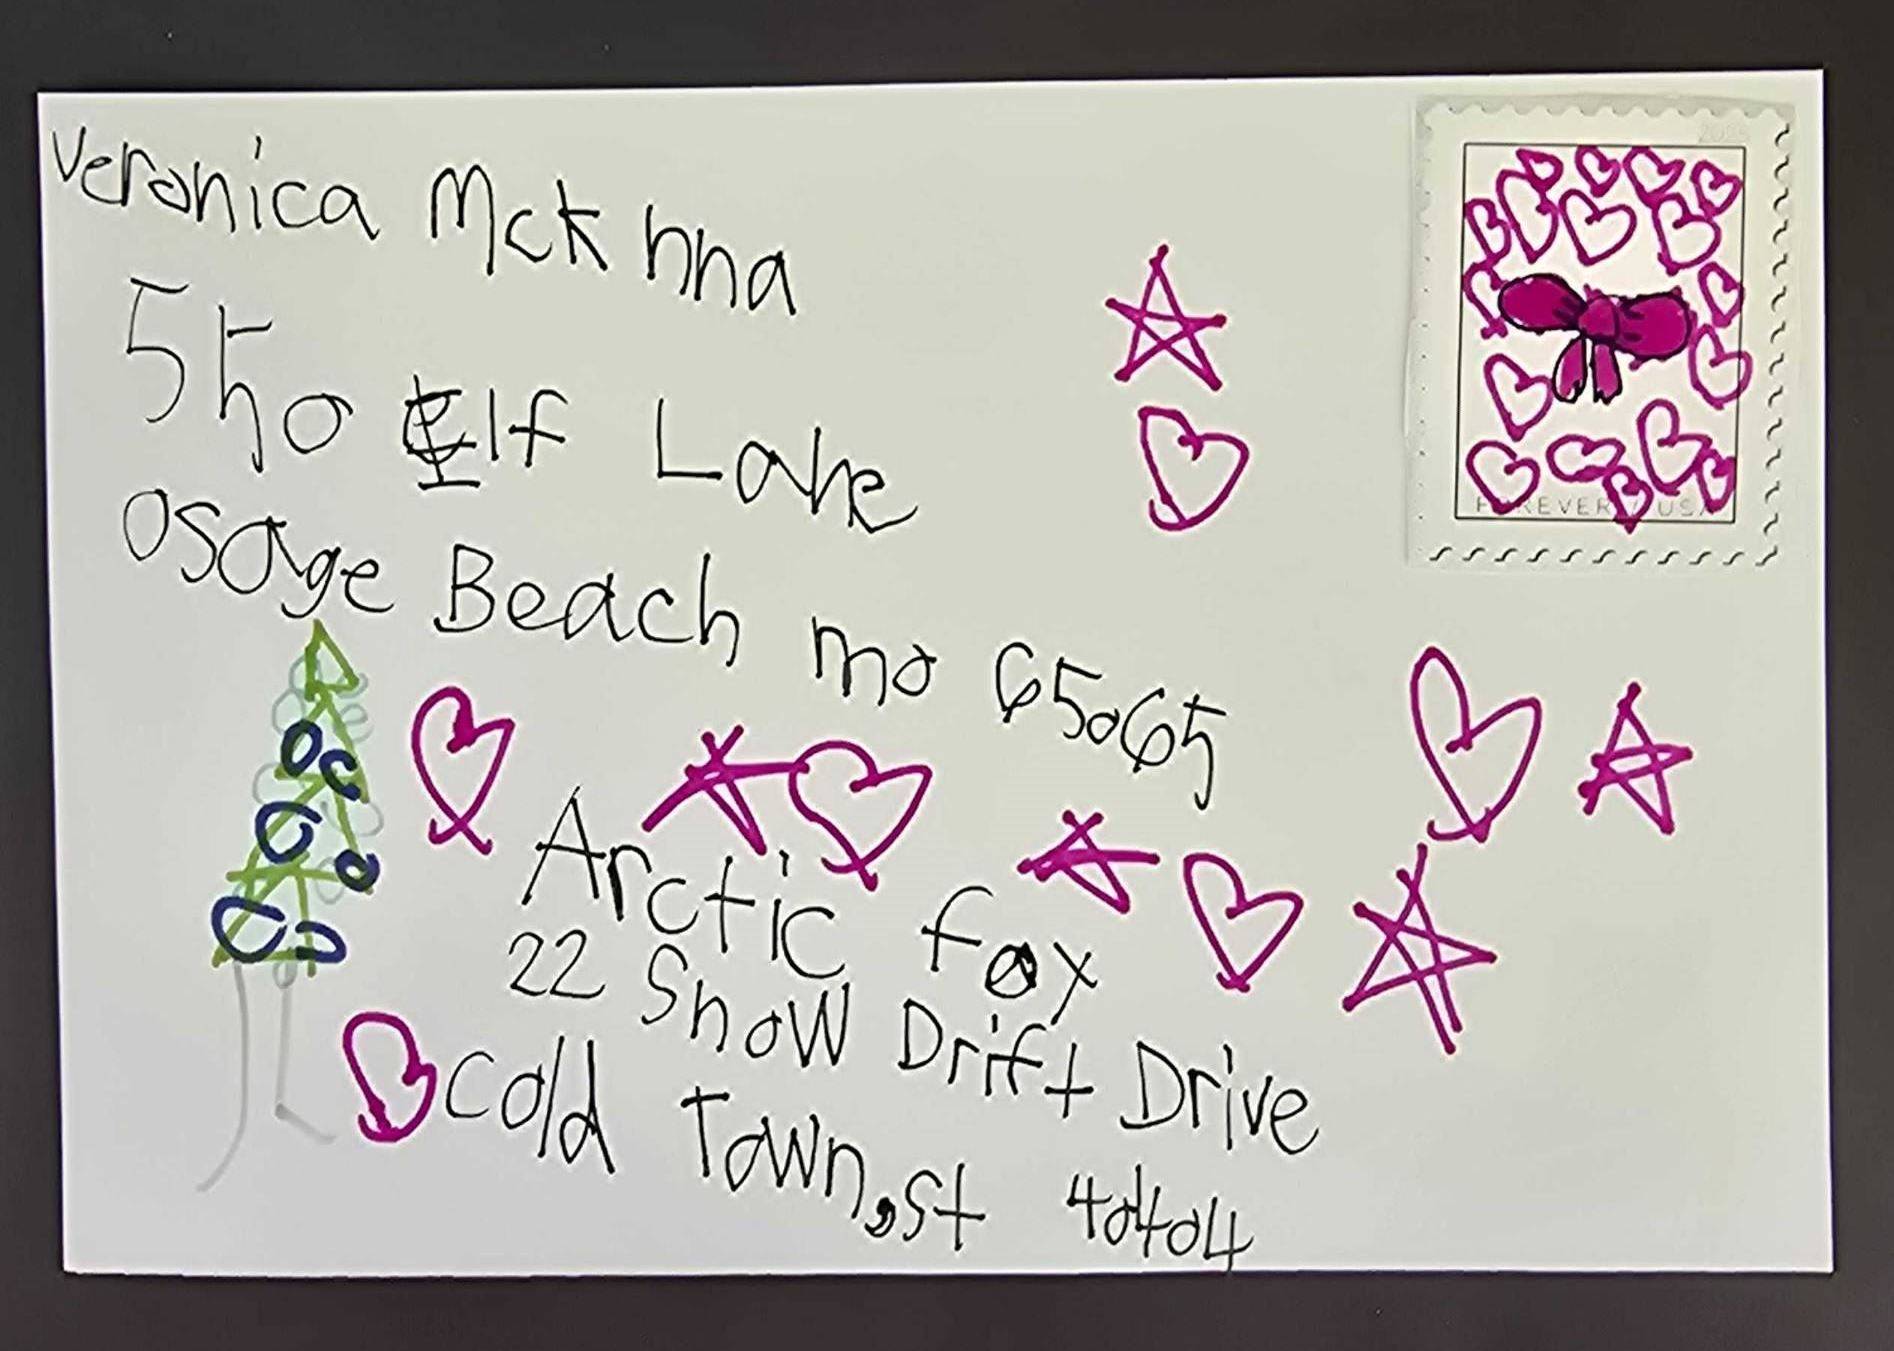 Veronica Mck nna
550 Elf Lake
osage Beach mo 65065
Arctic fox
22 Snow Drift Drive
cold Town, st 40404
FOREVER / USA